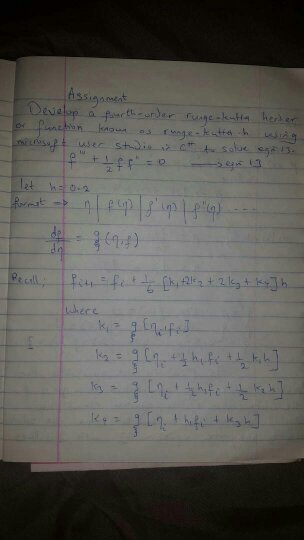 Assignment
Develop a fourth-order runge-kutta
or function known as runge-kutta-h using
microsoft studio in C++ to solve eqn 13.
f''' + 1/2 f f'' = 0 ——— eqn 13
let h = 0.2
format ⇒ η | f(η) | f'(η) | f''(η) ....
df/dη = (η, f)
Recall; f i+1 = f i + 1/6 [k1 + 2k2 + 2k3 + k4] h
where
k1 = [ηi, fi]
k2 = [ηi + 1/2 h, fi + 1/2 k1 h]
k3 = [ηi + 1/2 h, fi + 1/2 k2 h]
k4 = [ηi + h, fi + k3 h]